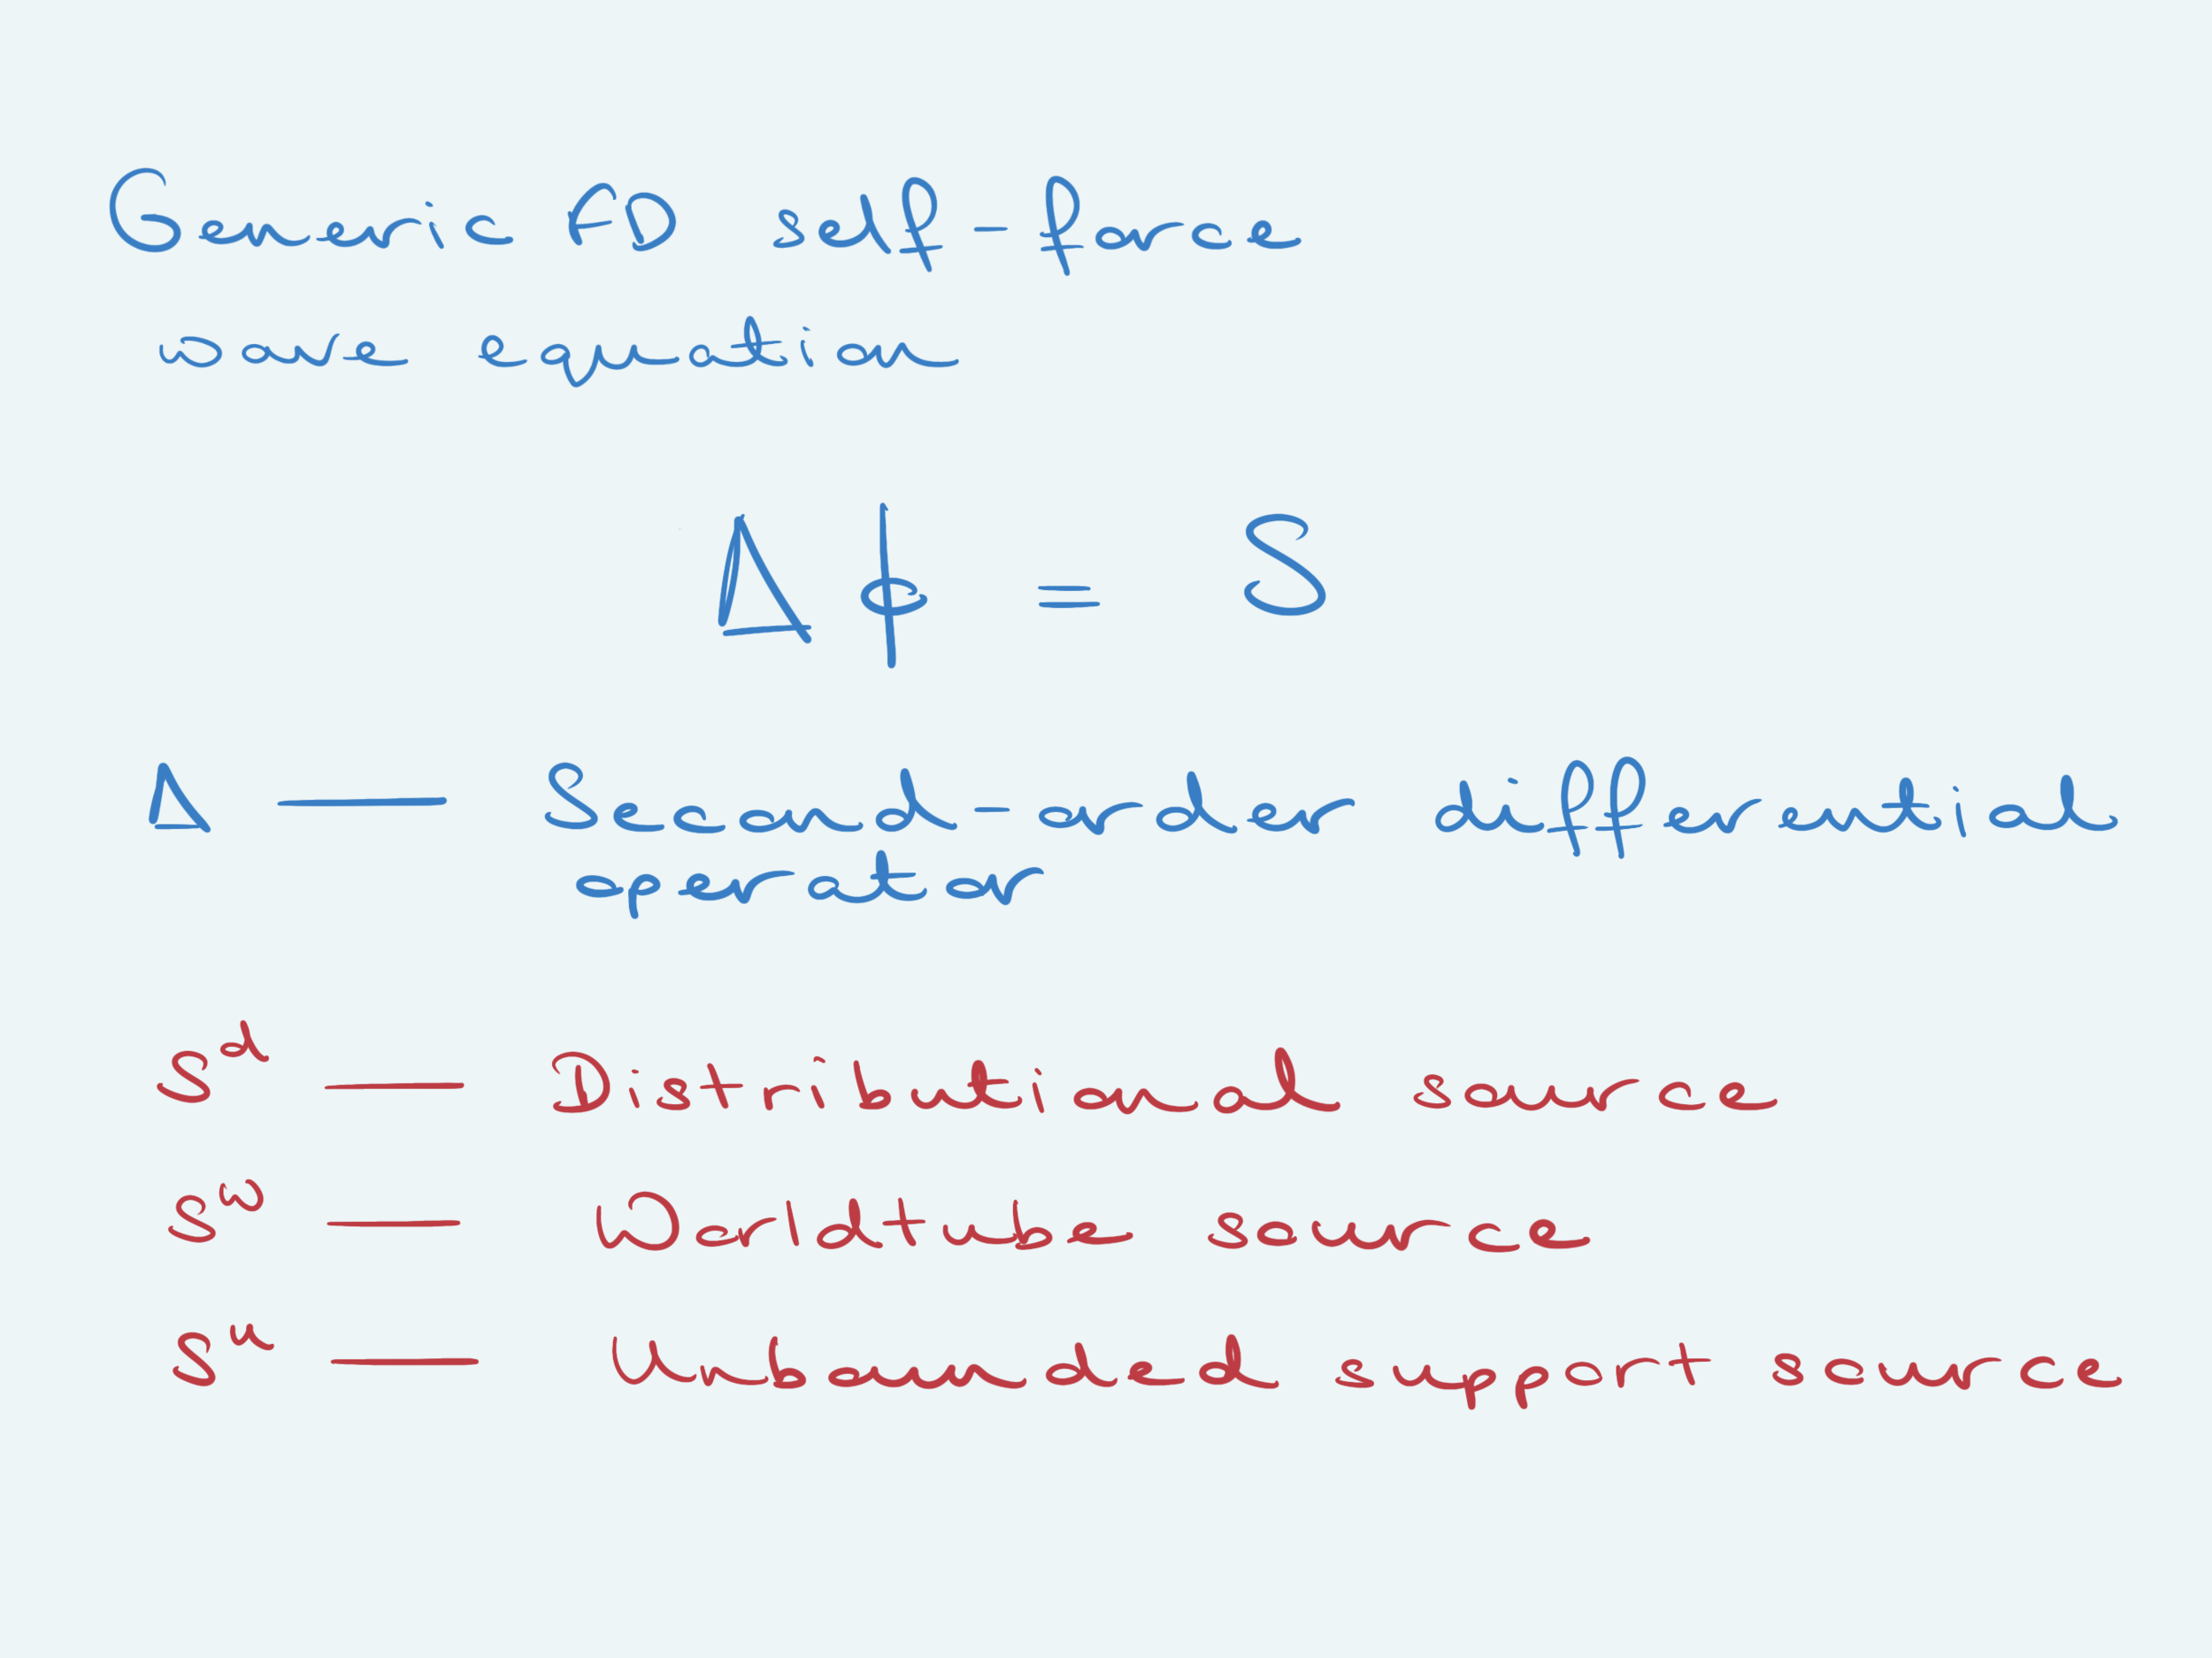 Generic FD self-force
wave equation
Δ ϕ = S
Δ — Second-order differential
operator
S^d — Distributional source
S^w — Worldtube source
S^u — Unbounded support source